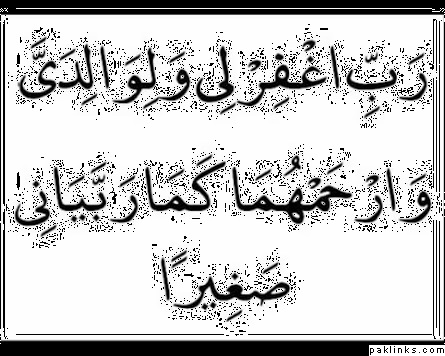 رَبِّ اغْفِرْ لِي وَلِوَالِدَيَّ
وَارْحَمْهُمَا كَمَا رَبَّيَانِي
صَغِيرًا
paklinks.com